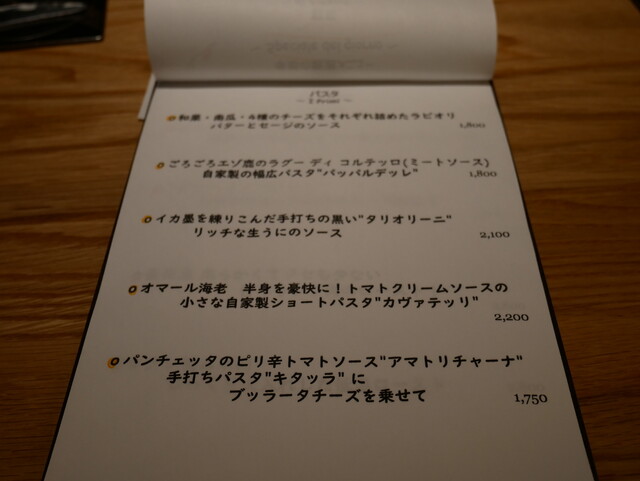 パスタ
~ I Primi ~
和栗・南瓜・4種のチーズをそれぞれ詰めたラビオリ
バターとセージのソース 1,800
ごろごろエゾ鹿のラグー ディ コルテッロ(ミートソース)
自家製の幅広パスタ"パッパルデッレ" 1,800
イカ墨を練りこんだ手打ちの黒い"タリオリーニ"
リッチな生うにのソース 2,100
オマール海老 半身を豪快に!トマトクリームソースの
小さな自家製ショートパスタ"カヴァテッリ"
2,200
パンチェッタのピリ辛トマトソース"アマトリチャーナ"
手打ちパスタ"キタッラ" に
ブッラータチーズを乗せて 1,750